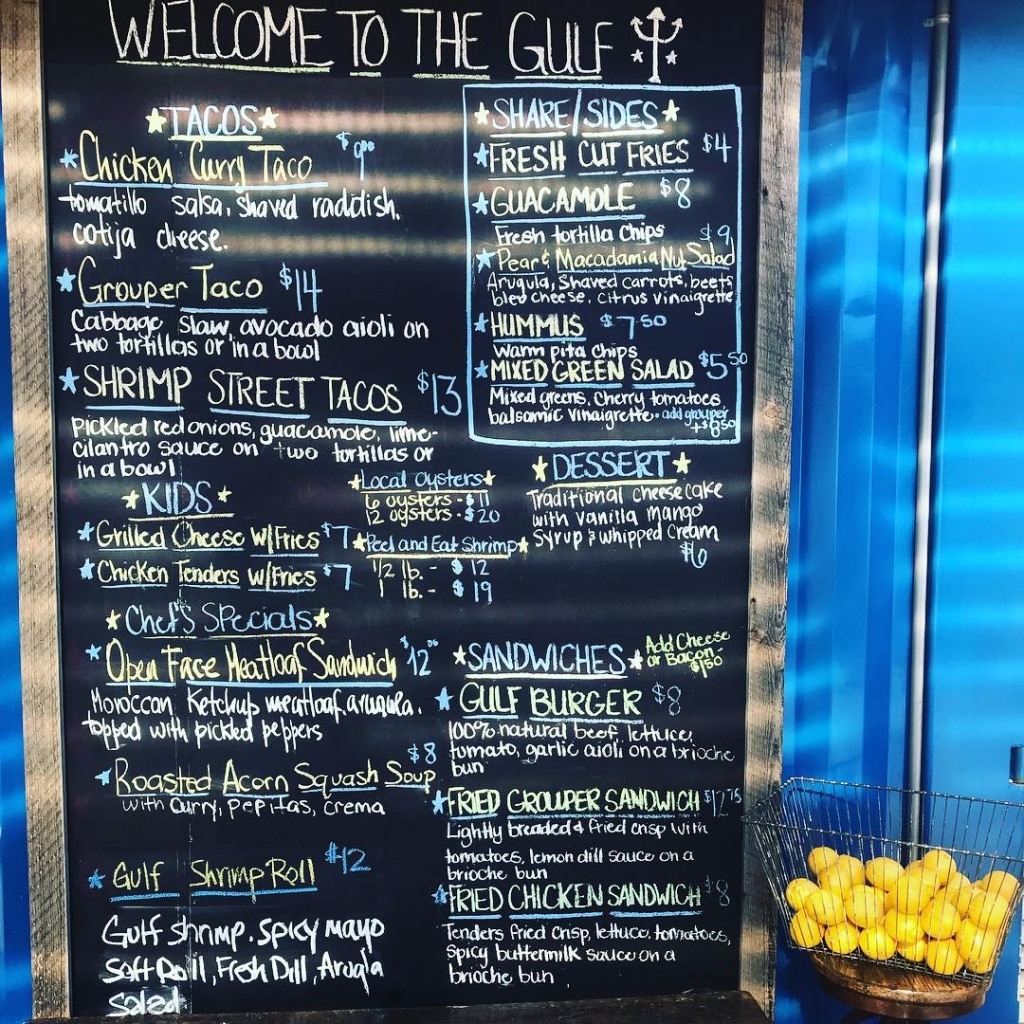 WELCOME TO THE GULF
TACOS
Chicken Curry Taco $9.00
tomatillo salsa, shaved raddish,
cotija cheese.
Grouper Taco $14
Cabbage slaw, avocado aioli on
two tortillas or in a bowl
SHRIMP STREET TACOS $13
pickled red onions, guacamole, lime-
cilantro sauce on two tortillas or
in a bowl
KIDS
Grilled Cheese w/Fries $7
Chicken Tenders w/Fries $7
Local Oysters
6 oysters - $11
12 oysters - $20
Peel and Eat Shrimp
1/2 lb. - $12
1 lb. - $19
Chef's Specials
Open Face Meatloaf Sandwich $12
Moroccan Ketchup meatloaf, arugula,
topped with pickled peppers
$8
Roasted Acorn Squash Soup
with curry, pepitas, crema
Gulf Shrimp Roll $12
Gulf shrimp, spicy mayo
Soft Roll, Fresh Dill, Arugla
Salad
SHARE/SIDES
FRESH CUT FRIES $4
GUACAMOLE $8
Fresh tortilla chips
$9
Pear & Macadamia Nut Salad
Arugula, Shaved carrots, beets
bleu cheese, citrus vinaigrette
HUMMUS $7.50
Warm pita chips
MIXED GREEN SALAD $5.50
Mixed greens, cherry tomatoes,
balsamic vinaigrette · add grouper
+$8.50
DESSERT
Traditional cheesecake
with vanilla mango
syrup & whipped cream
$6
SANDWICHES
Add Cheese
or Bacon -
$1.50
GULF BURGER $8
100% natural beef, lettuce,
tomato, garlic aioli on a brioche
bun
FRIED GROUPER SANDWICH $12.75
Lightly breaded & fried crisp with
tomatoes, lemon dill sauce on a
brioche bun
FRIED CHICKEN SANDWICH $8
Tenders fried crisp, lettuce, tomatoes,
spicy buttermilk sauce on a
brioche bun